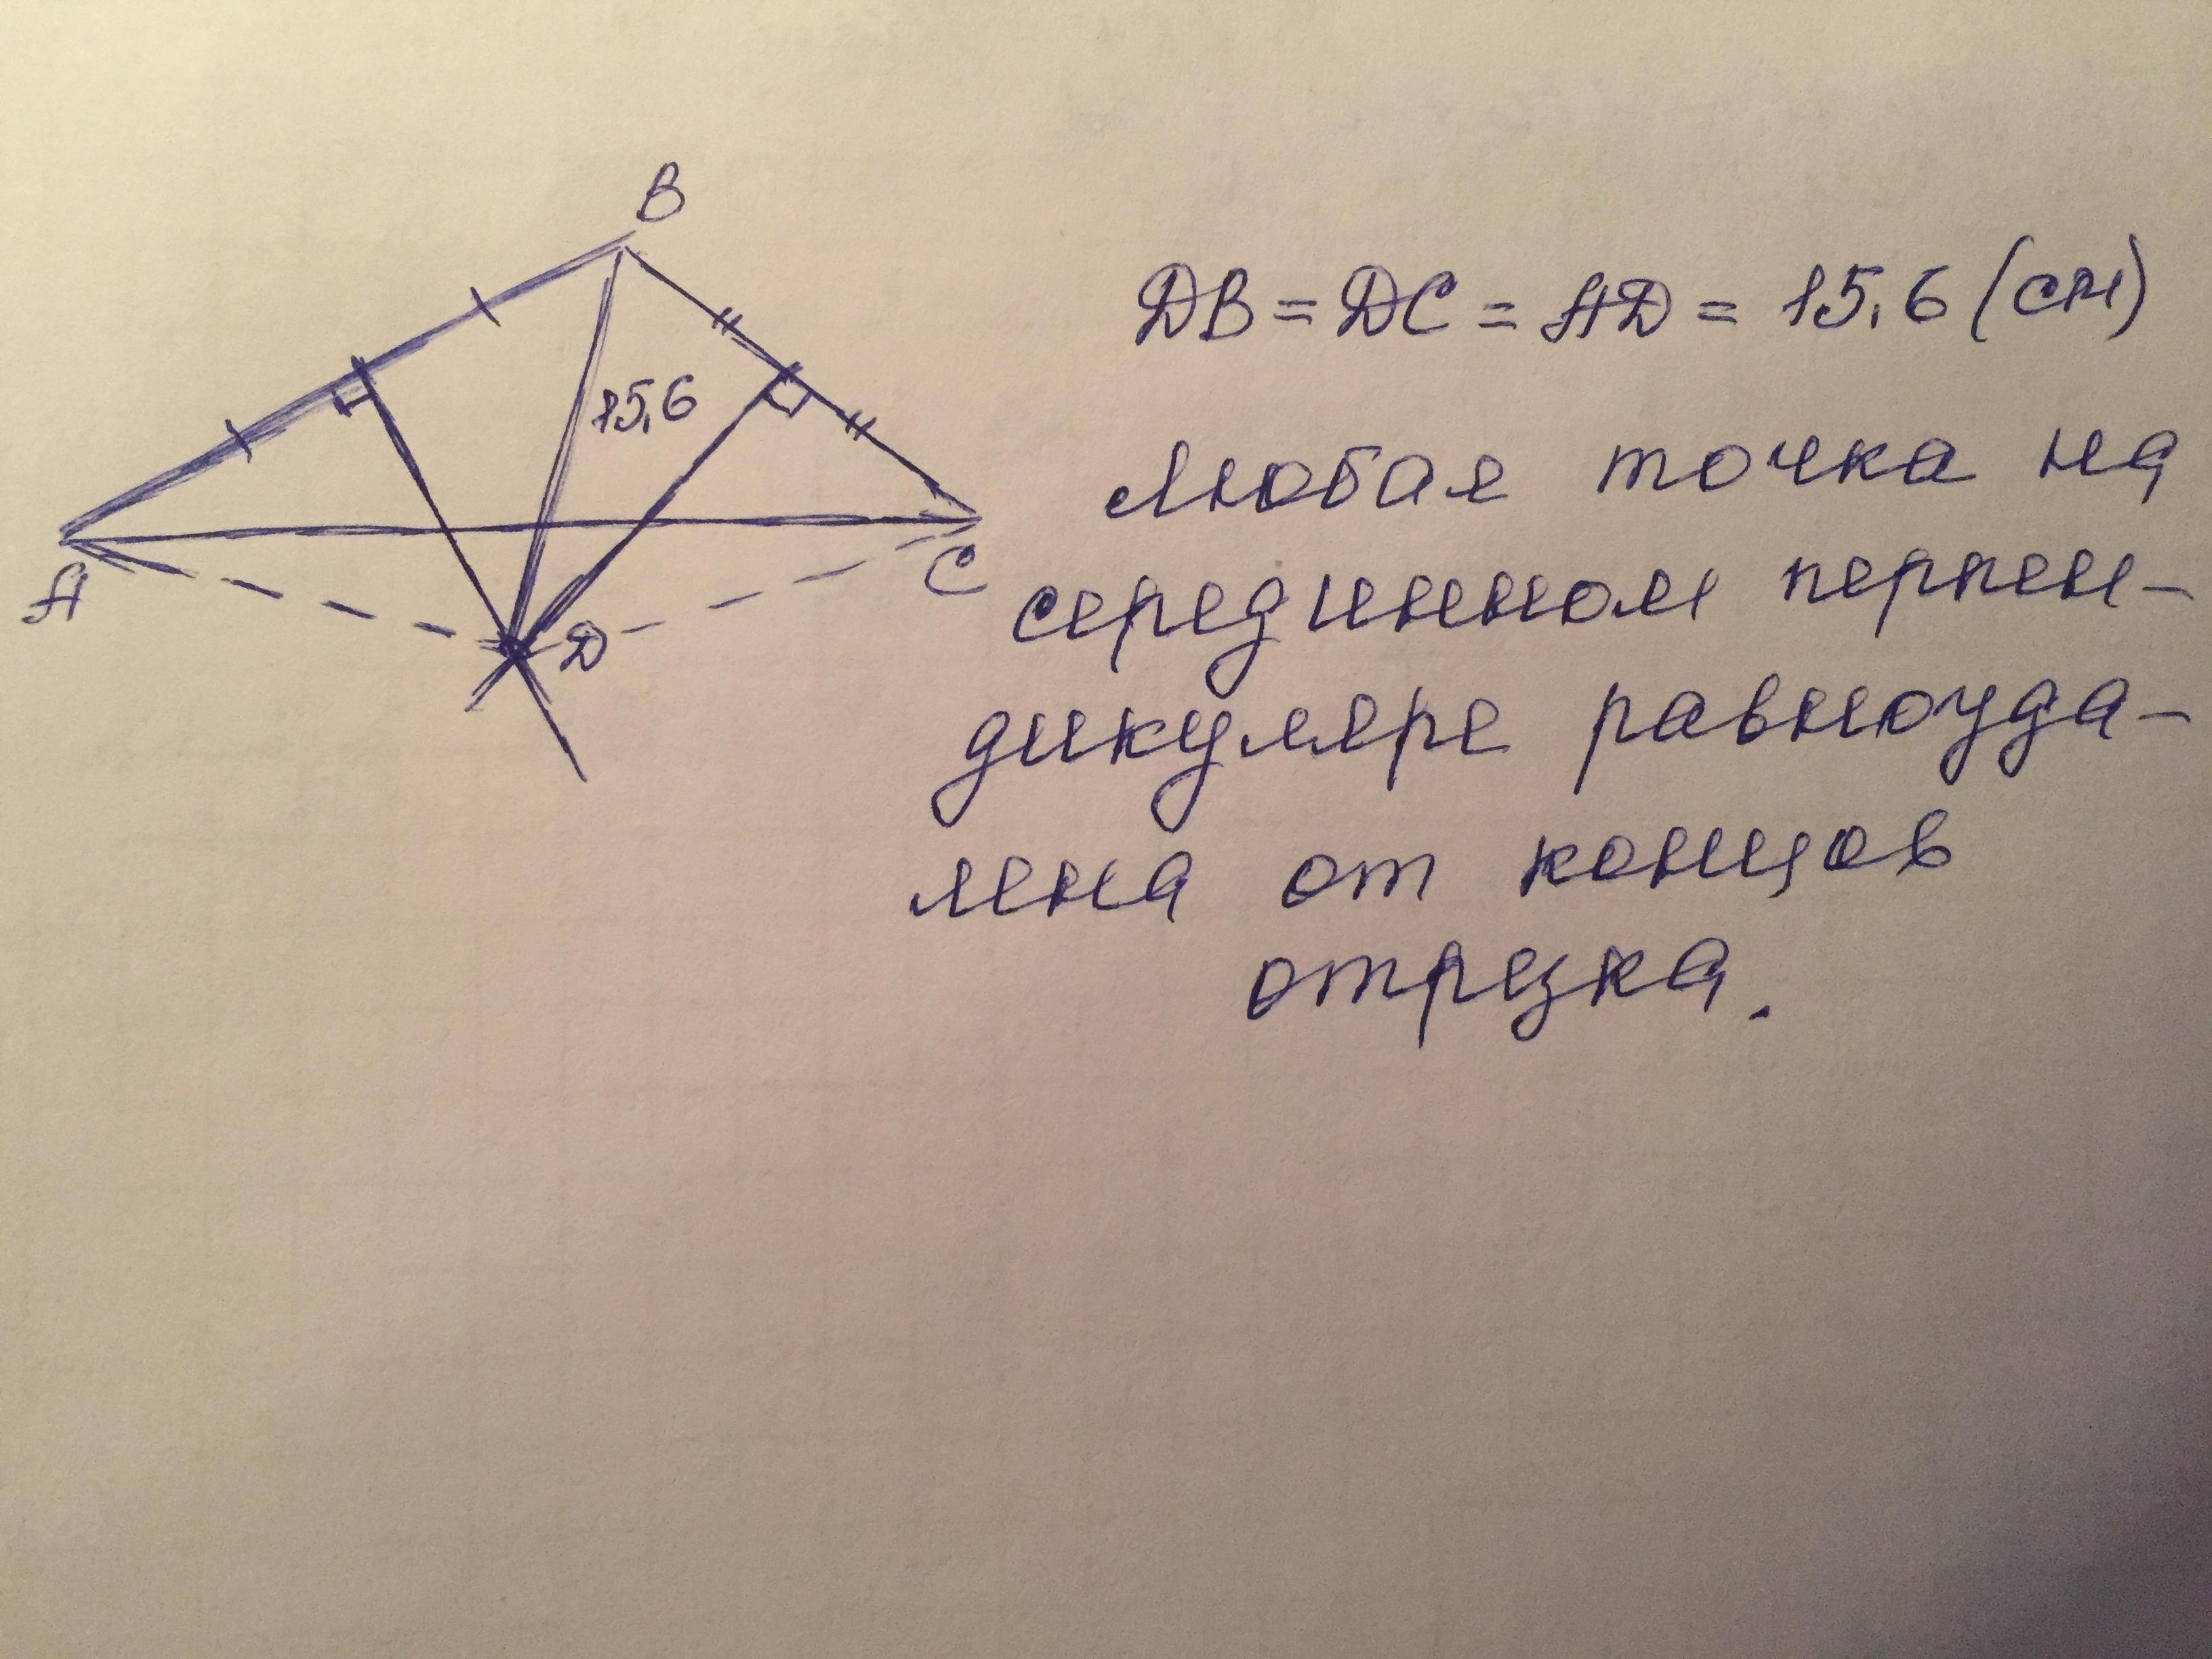 B
15,6
A
C
D
DB = DC = AD = 15,6 (см)
Любая точка на
серединном перпен-
дикуляре равноуда-
лена от концов
отрезка.